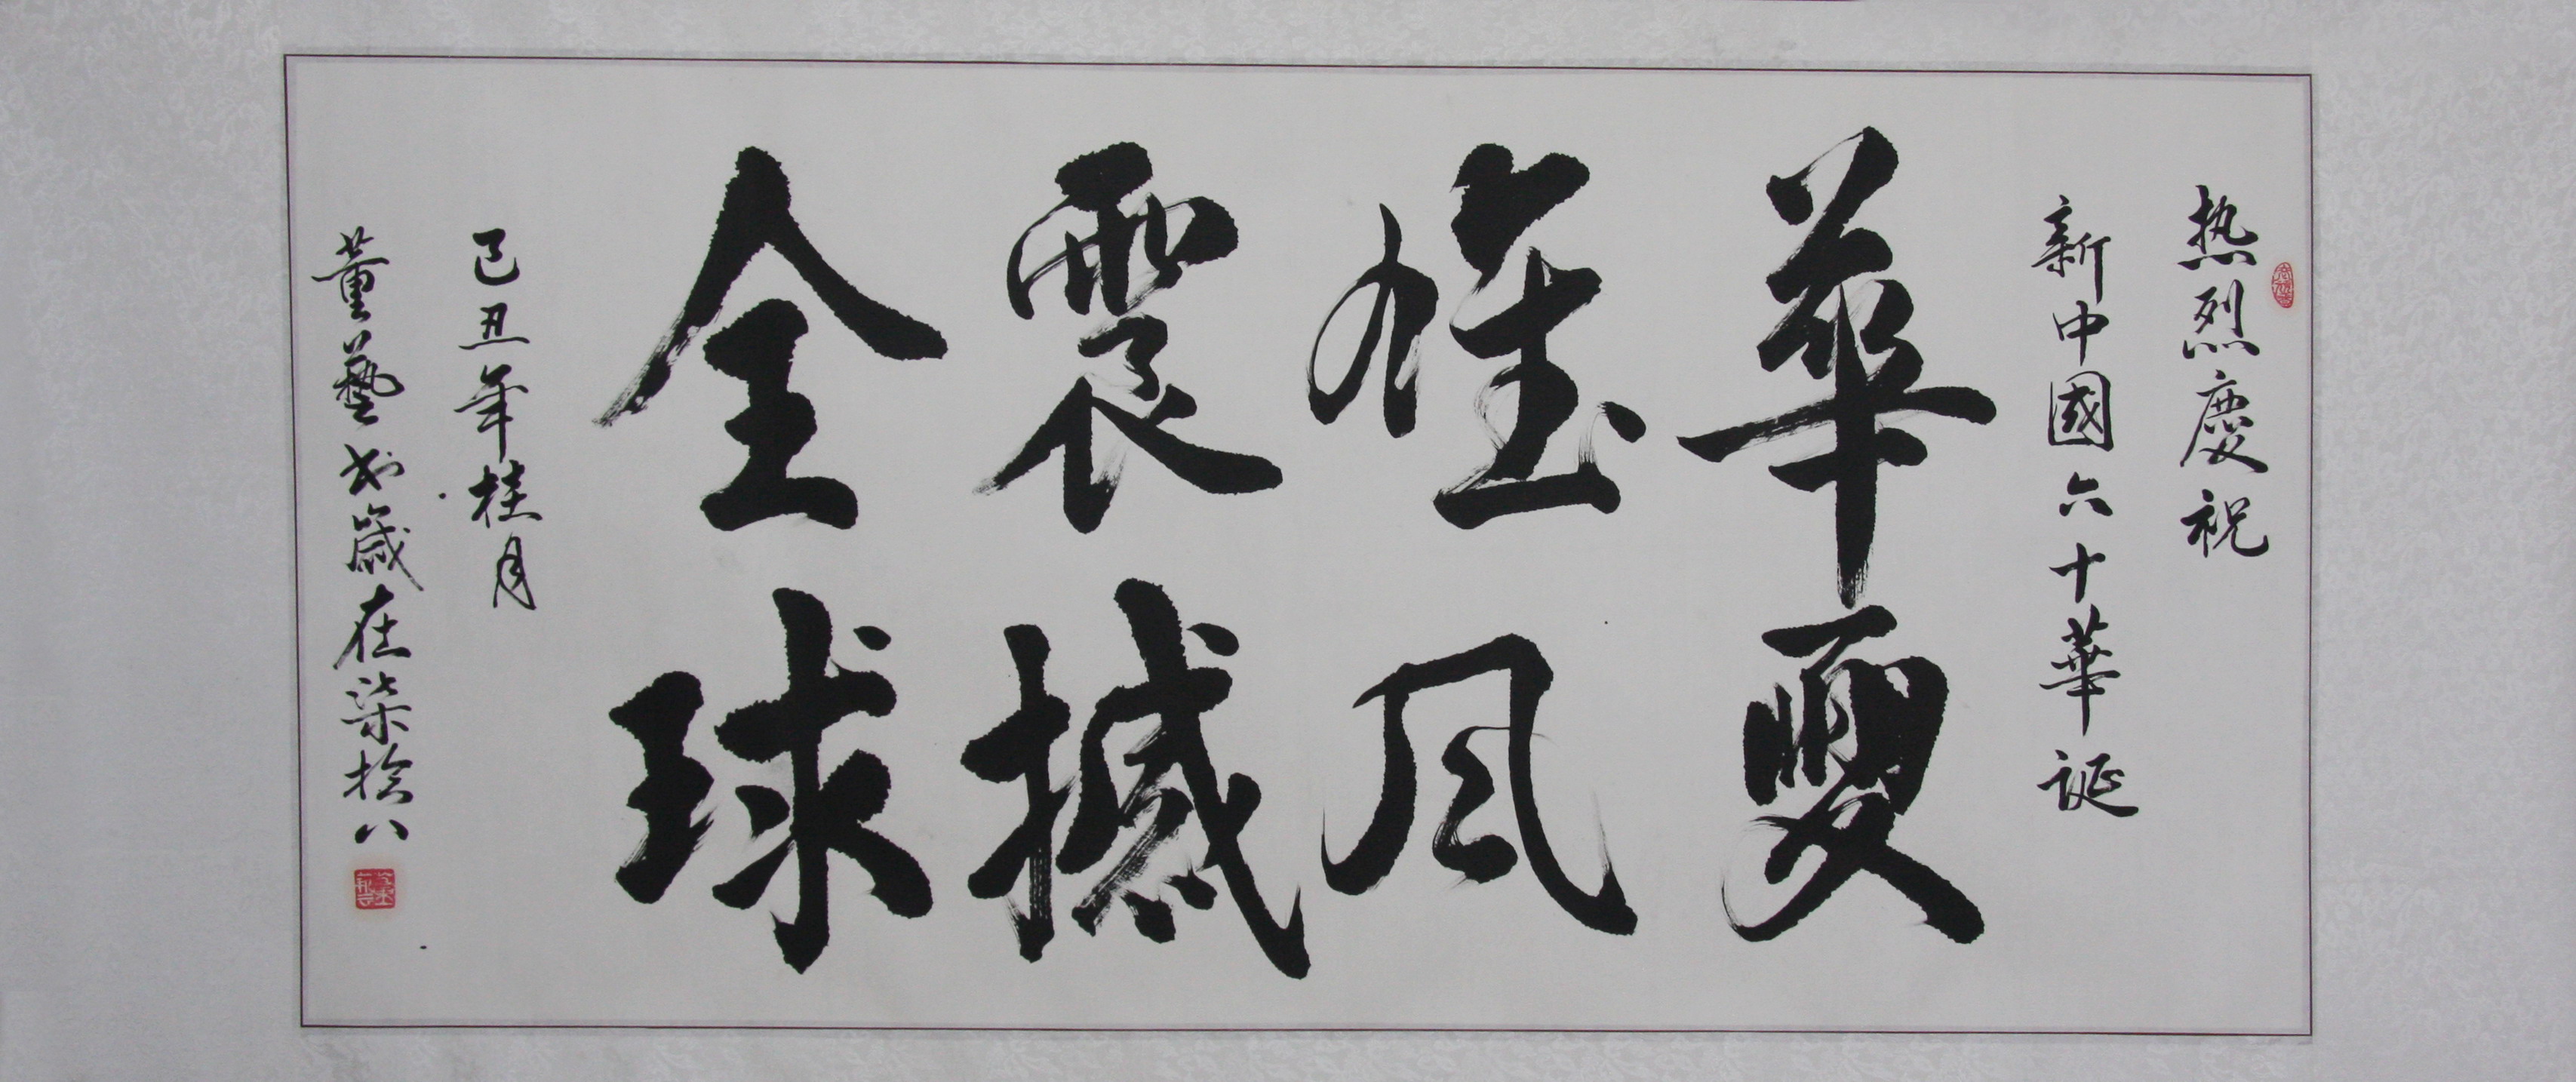 热烈慶祝
新中國六十華誕
華夏
雄风
震撼
全球
己丑年桂月
董藝书歲在柒拾八